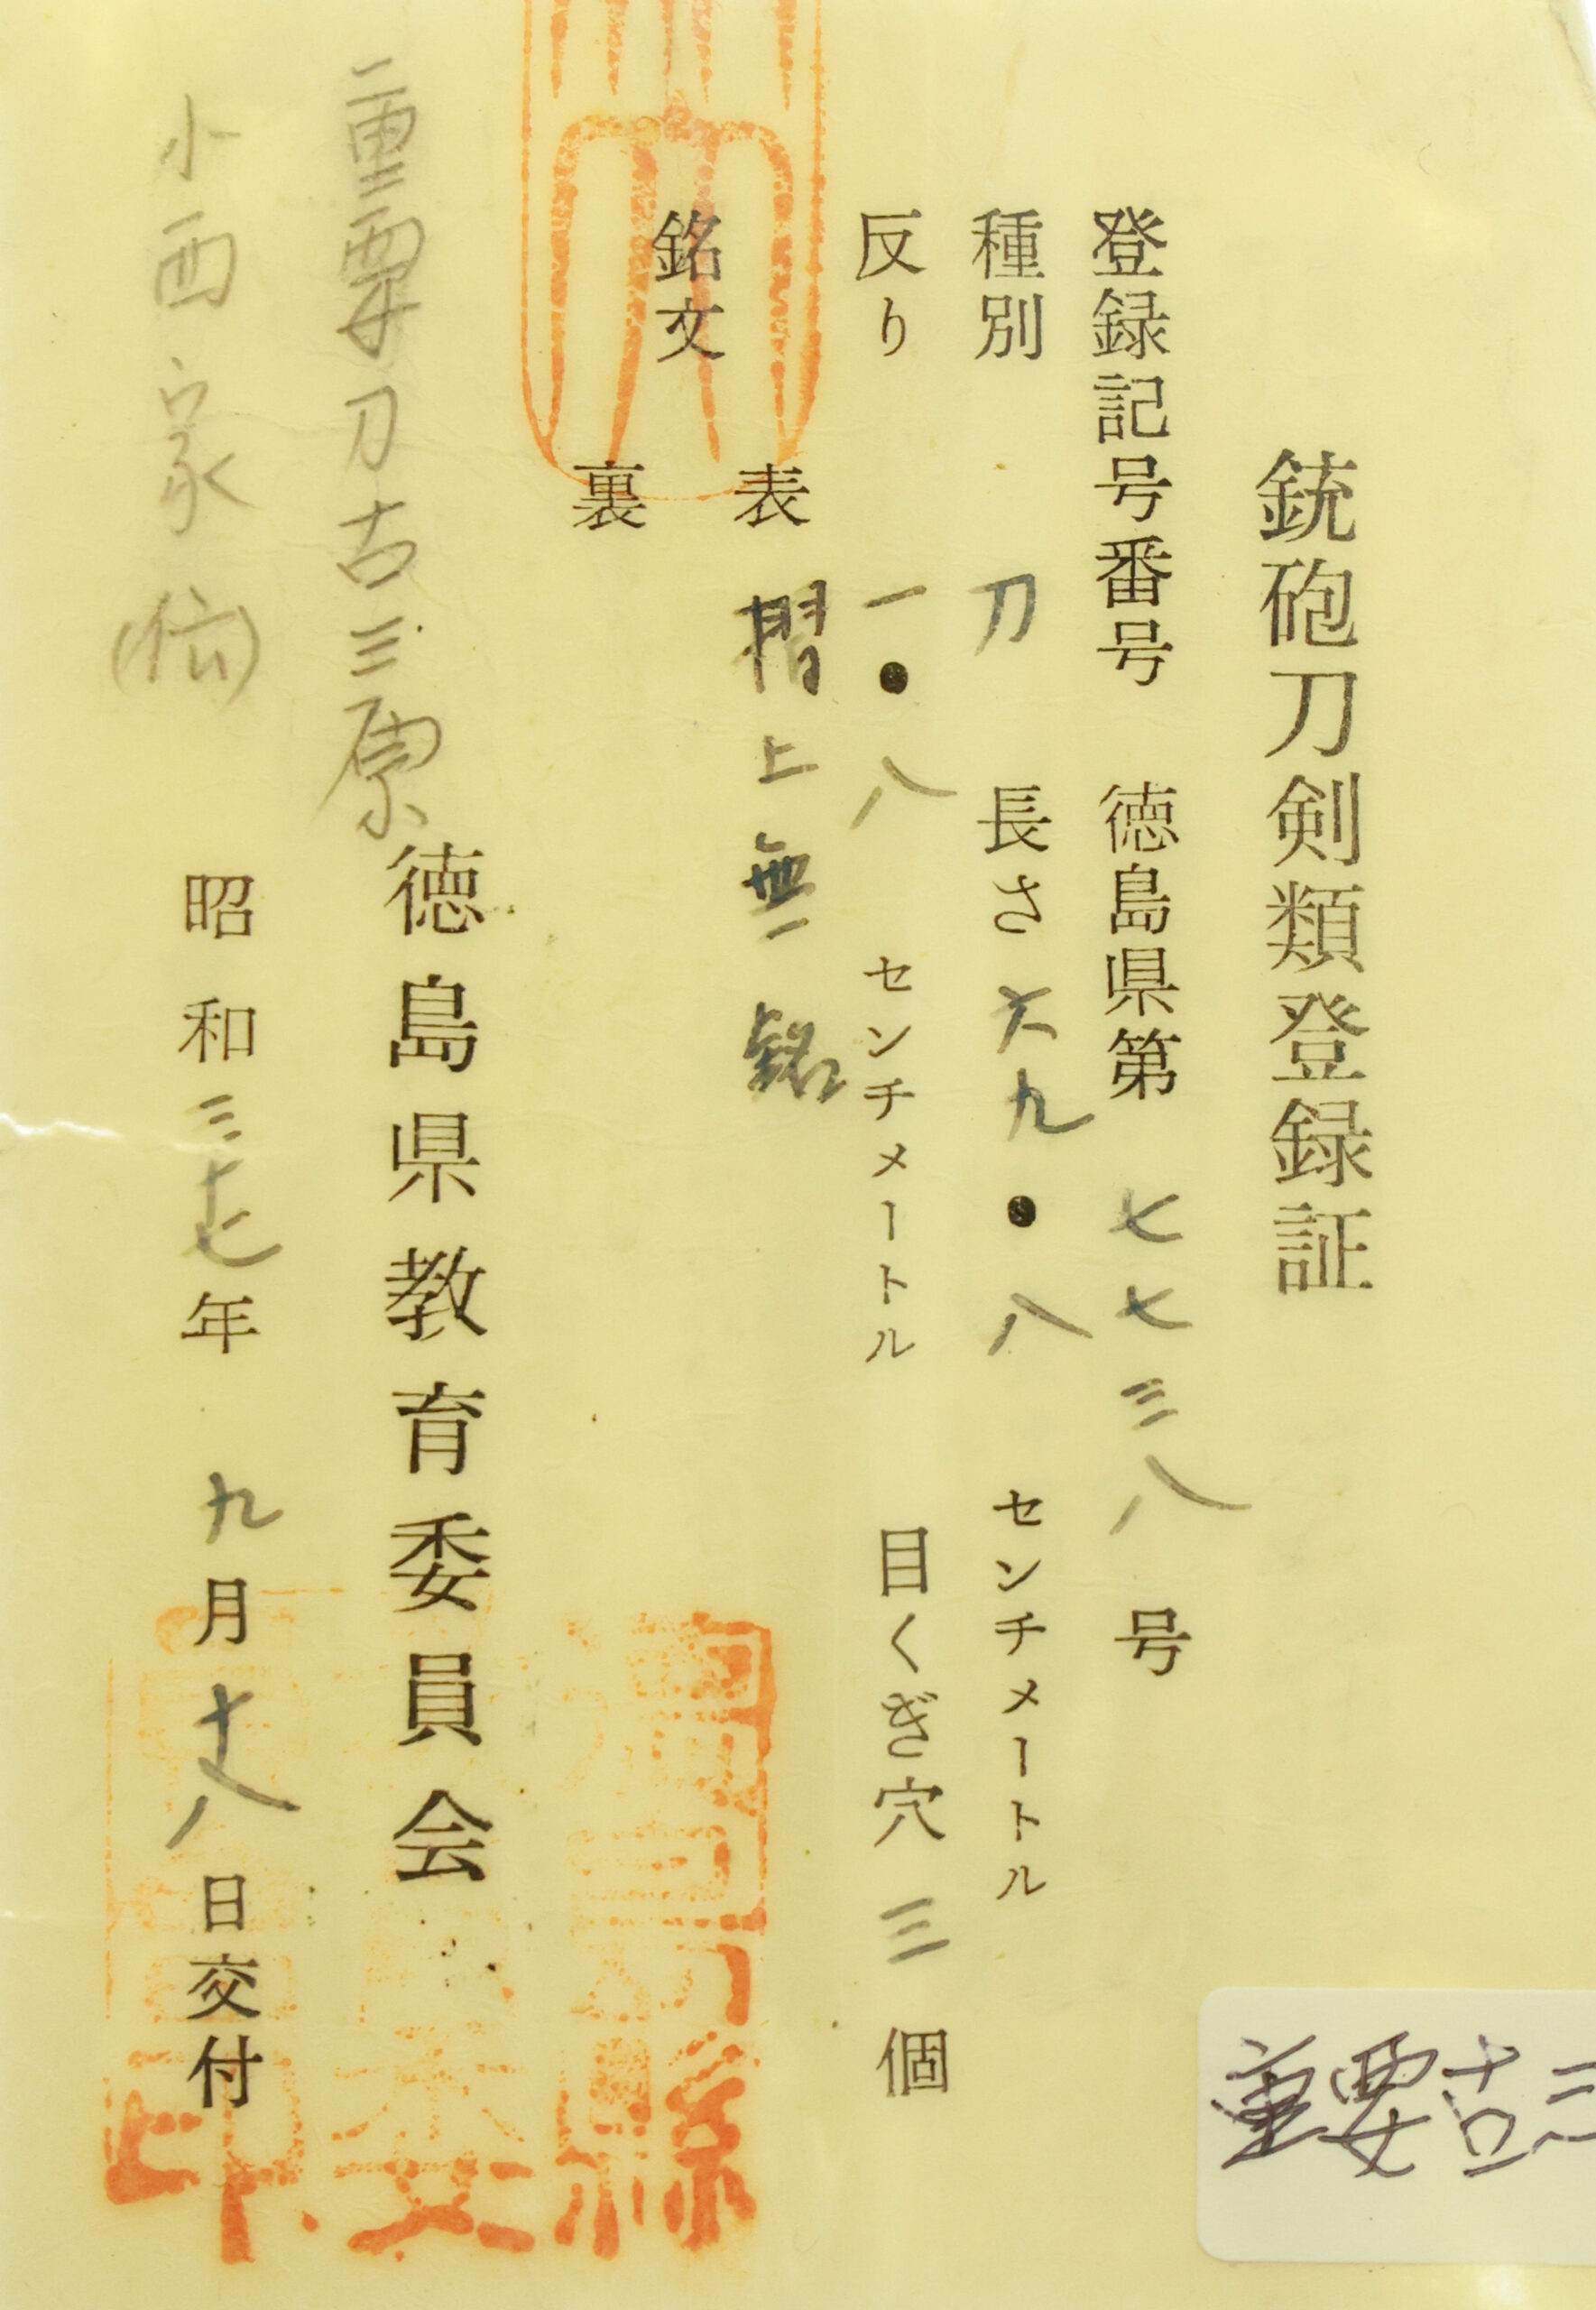 銃砲刀剣類登録証
登録記号番号 徳島県第 七七三八 号
種別 刀 長さ 六九・八 センチメートル
反り 一・八 センチメートル 目くぎ穴 三 個
銘文
表 摺上無銘
裏
重要刀古三原
徳島県教育委員会
小西家(伝)
昭和三十七年 九月 十八日交付
重要古三